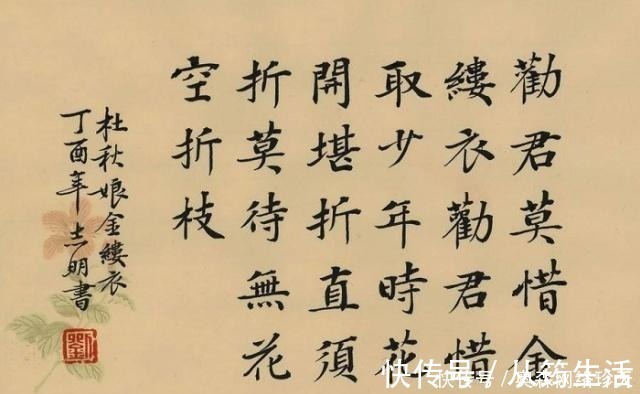 勸君莫惜金
縷衣勸君惜
取少年時花
開堪折直須
折莫待無花
空折枝
杜秋娘金縷衣
丁酉年志明書
劉
快传号